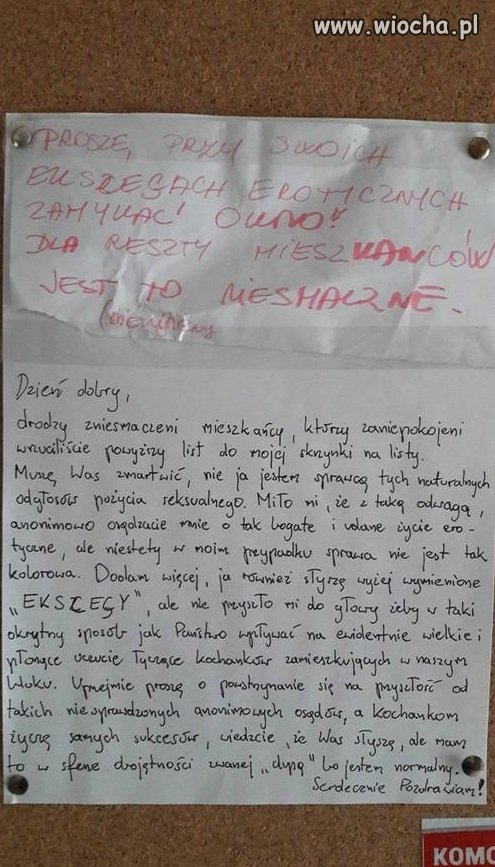 www.wiocha.pl
PROSZĘ, PRZY SWOICH
EKSCESACH EROTYCZNYCH
ZAMYKAĆ OKNO!
DLA RESZTY MIESZKAŃCÓW
JEST TO NIESMACZNE.
Dzień dobry,
drodzy zniesmaczeni mieszkańcy, którzy zaniepokojeni
wrzuciliście powyższy list do mojej skrzynki na listy.
Muszę Was zmartwić, nie ja jestem sprawcą tych naturalnych
odgłosów pożycia seksualnego. Miło mi, że z taką odwagą,
anonimowo osądzacie mnie o tak bogate i udane życie ero-
tyczne, ale niestety w moim przypadku sprawa nie jest tak
kolorowa. Dodam więcej, ja również słyszę wyżej wymienione
„EKSCESY", ale nie przyszło mi do głowy żeby w taki
okrutny sposób jak Państwo wpływać na ewidentnie wielkie i
płonące uczucie łączące kochanków zamieszkujących w naszym
bloku. Uprzejmie proszę o powstrzymanie się na przyszłość od
takich niesprawdzonych anonimowych osądów, a kochankom
życzę samych sukcesów, wiedzcie, że Was słyszę, ale mam
to w sferze obojętności zwanej „dupą" bo jestem normalny.
Serdecznie Pozdrawiam!
KOMO